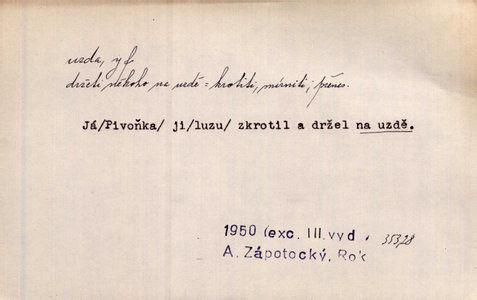 uzda, y f
držeti někoho na uzdě = krotiti, mírniti; přenes.
Já/Pivoňka/ ji/luzu/ zkrotil a držel na uzdě.
1950 (exc. III. vyd. 353,28
A. Zápotocký, Rok